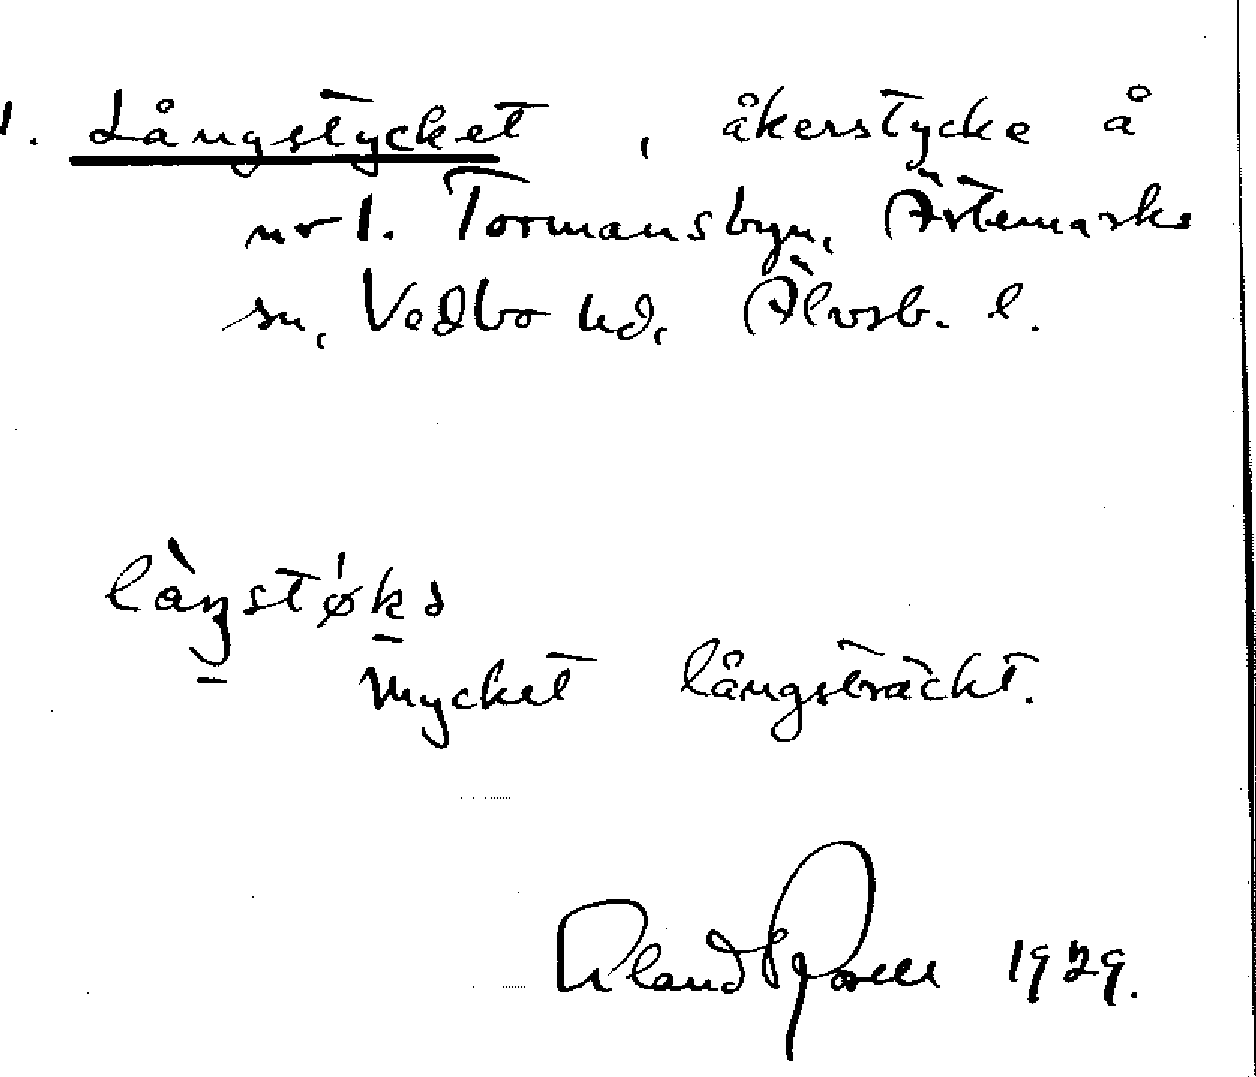 1. Långstycket, åkerstycke å
nr 1. Tormansbyn, Ärtemarks
sn, Vedbo hd, Älvsb. l.
låŋstøkə
Mycket långsträckt.
1929.